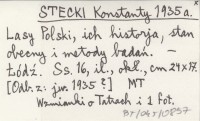 STECKI Konstanty 1935 a.
Lasy Polski, ich historja, stan
obecny i metody badań. —
Łódź. Ss. 16, il., okł., cm 24 x 17.
[Odb. z: jw. 1935?] MT
Wzmianki o Tatrach i 1 fot.